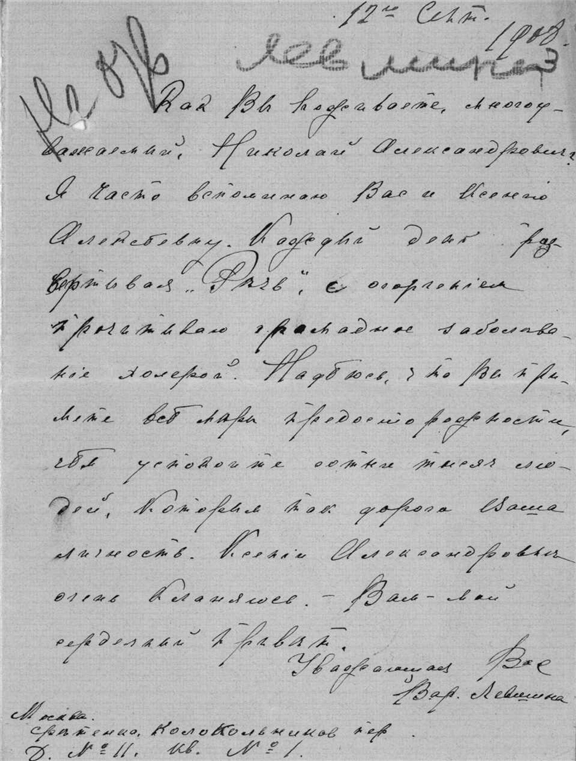 12го Сент.
1908.
Не отв
Левшина
Какъ Вы поживаете, многоу-
важаемый, Николай Александровичъ?
Я часто вспоминаю Васъ и Ксенію
Алексѣевну. Каждый день раз-
вертывая „Рѣчь", съ огорченіемъ
прочитываю громадное заболѣва-
ніе холерой. Надѣюсь, что Вы при-
мете всѣ мѣры предосторожности,
чѣмъ успокоите сотни тысяч лю-
дей, которымъ такъ дорога Ваша
личность. Ксеніи Александровнѣ
очень кланяюсь. — Вамъ — мой
сердечный привѣтъ.
Уважающая Васъ
Вар. Левшина
Москва.
Срѣтенка, Колокольниковъ пер.
Д. № 11. кв. № 1.